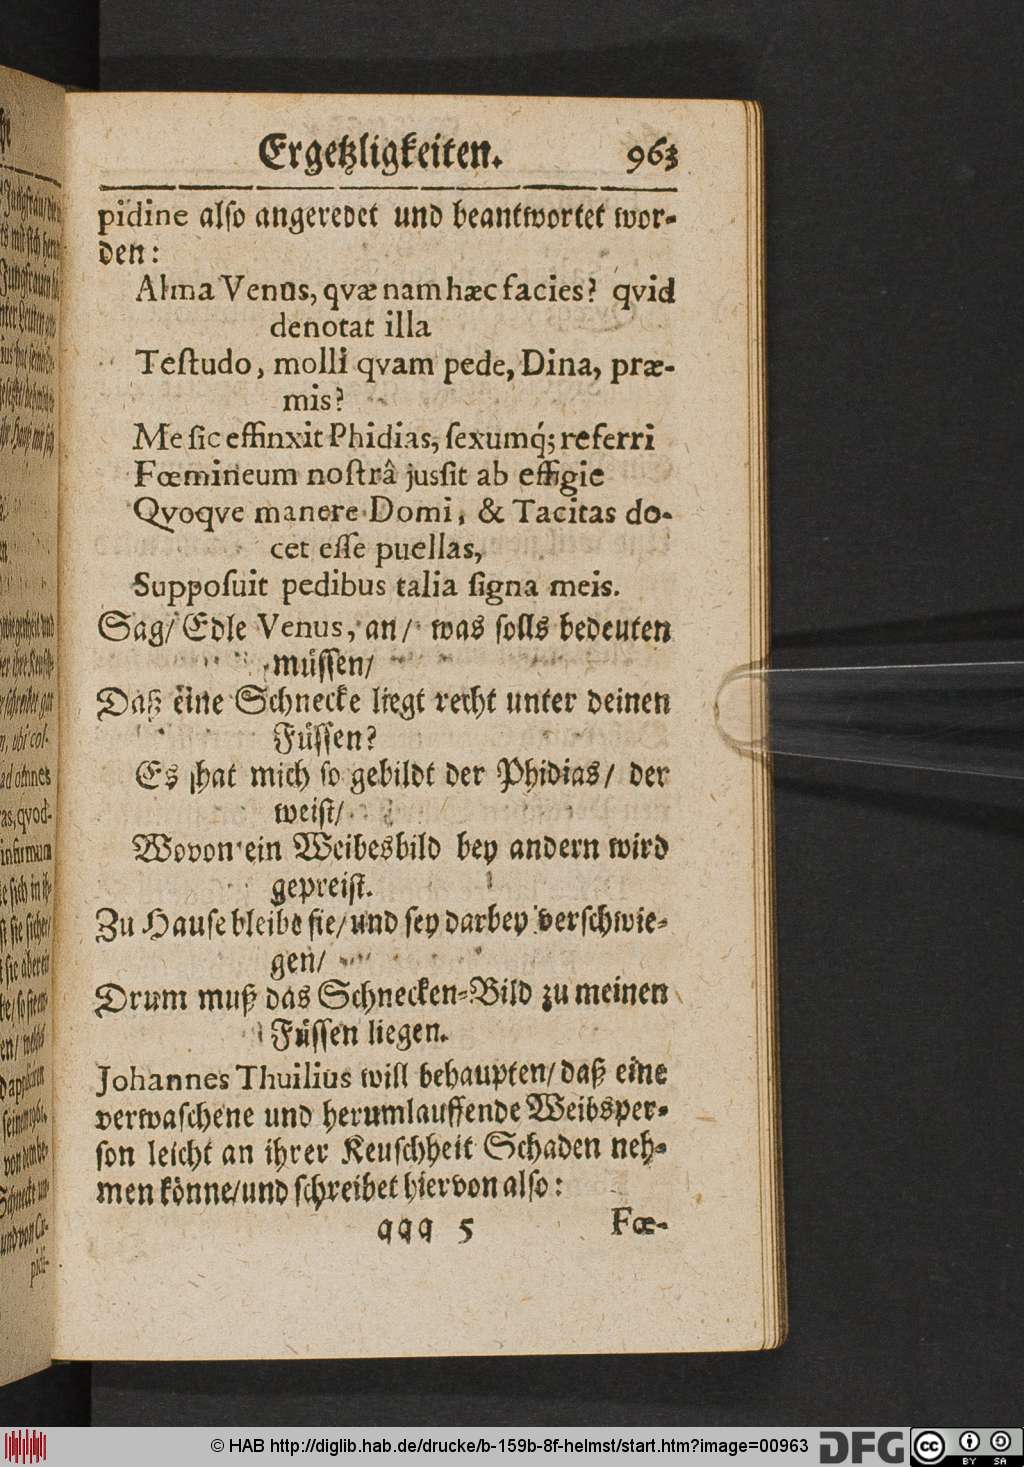 Ergetzligkeiten. 963
pidine also angeredet und beantwortet wor-
den:
Alma Venus, qvænam hæc facies? qvid
denotat illa
Testudo, molli qvam pede, Dina, præ-
mis?
Me sic effinxit Phidias, sexumq́; referri
Fœmineum nostrâ jussit ab effigie
Qvoqve manere Domi, & Tacitas do-
cet esse puellas,
Supposuit pedibus talia signa meis.
Sag/ Edle Venus, an/ was solls bedeuten
müssen/
Daß eine Schnecke liegt recht unter deinen
Füssen?
Es hat mich so gebildt der Phidias/ der
weist/
Wovon ein Weibesbild bey andern wird
gepreist.
Zu Hause bleibe sie/ und sey darbey verschwie-
gen/
Drum muß das Schnecken-Bild zu meinen
Füssen liegen.
Johannes Thuilius will behaupten/ daß eine
verwaschene und herumlauffende Weibsper-
son leicht an ihrer Keuschheit Schaden neh-
men könne/ und schreibet hiervon also:
qqq 5 Fœ-
© HAB http://diglib.hab.de/drucke/b-159b-8f-helmst/start.htm?image=00963
DFG
cc BY SA